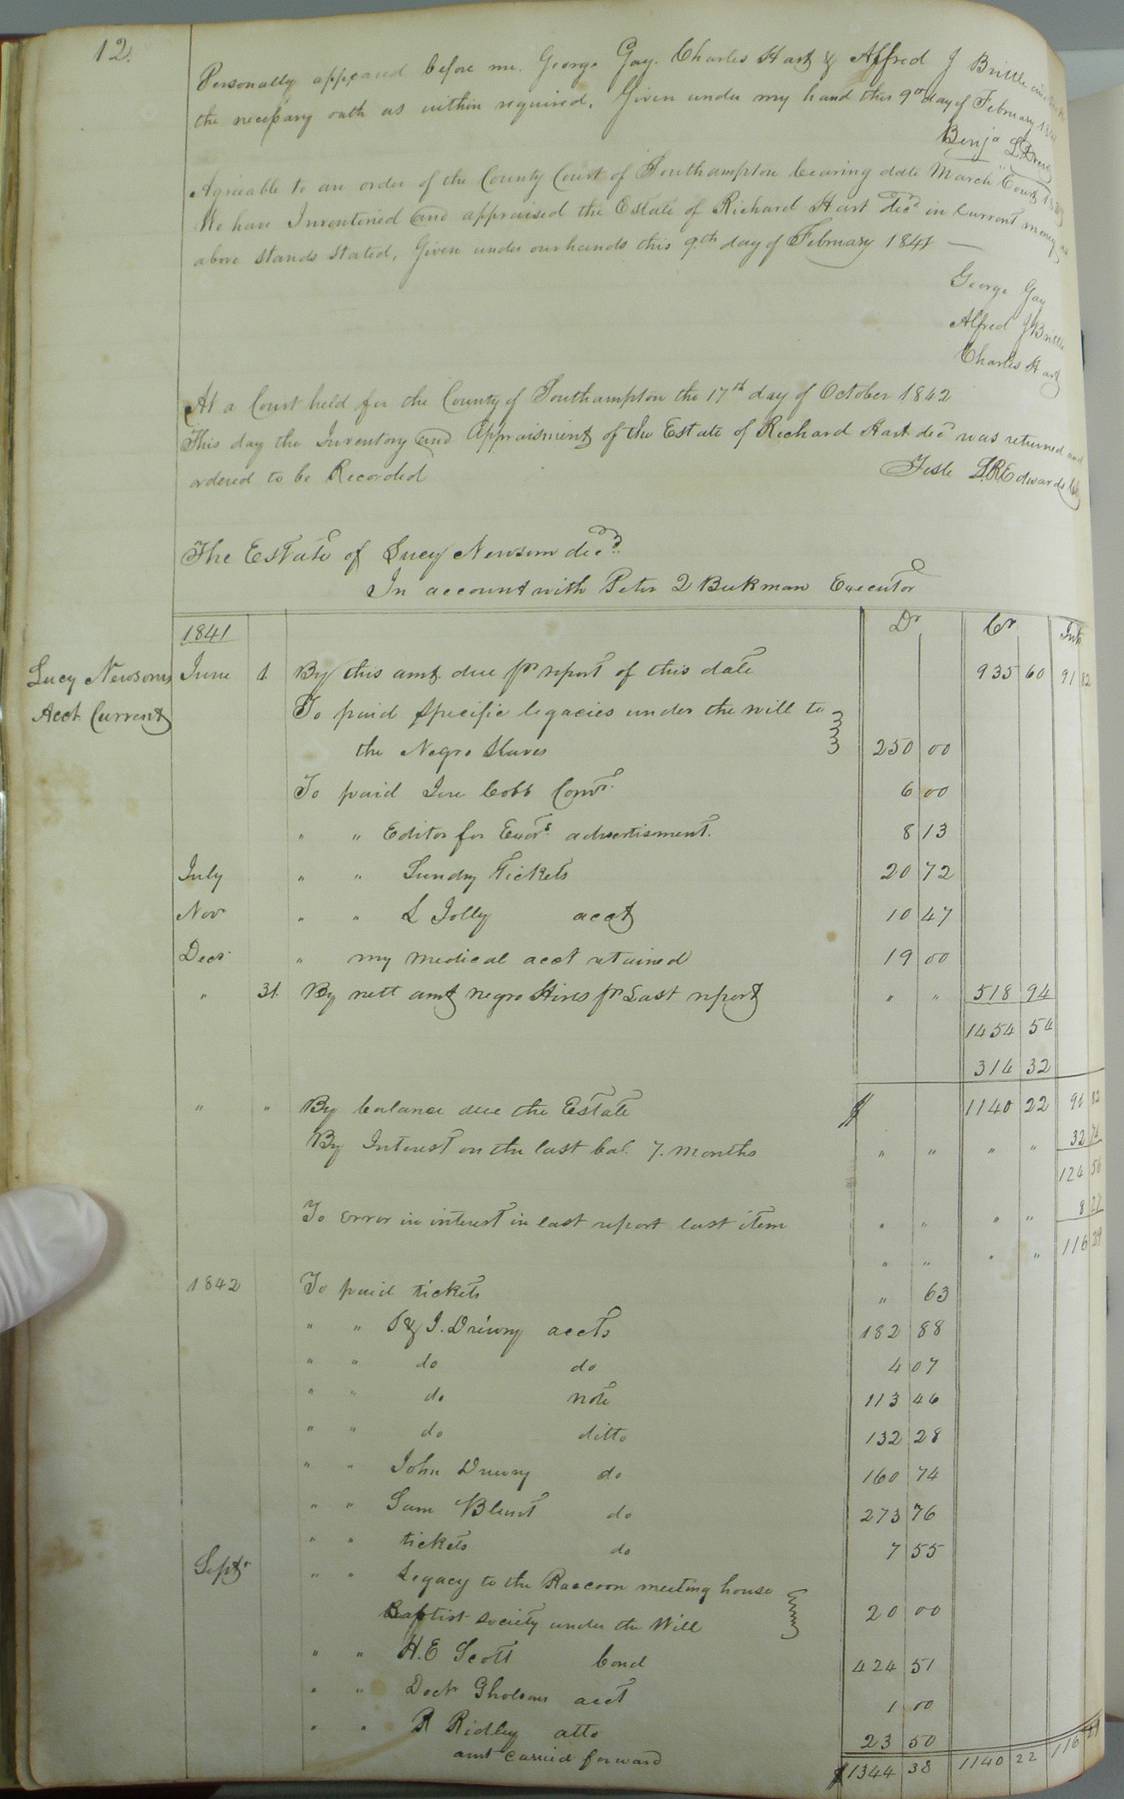 12.
Personally appeared before me. George Gay. Charles Hart & Alfred J Brittle
the necessary oath as within required. Given under my hand this 9th day of February
Benja
Agreeable to an order of the County Court of Southampton bearing date March Court
We have Inventoried and appraised the Estate of Richard Hart decd in Current money as
above stands stated, Given under our hands this 9th day of February 1841 —
George Gay
Alfred J Brittle
Charles Hart
At a Court held for the County of Southampton the 17th day of October 1842
This day the Inventory and Appraisment of the Estate of Richard Hart decd was returned and
ordered to be Recorded
Teste L.R Edwards Clk
The Estate of Lucy Newsom decd
In account with Peter Beekman Executor
Dr Cr Int
1841
Lucy Newsoms June 1 By this amt due pr report of this date 935 60 91 82
Acct Current To paid specific legacies under the will to
the Negro Slaves 250 00
To paid Jere Cobb Comr. 6 00
" " Editor for Exors advertisment. 8 13
July " " Sundry Tickets 20 72
Novr " " L Jolly acct 10 47
Decr " my medical acct retained 19 00
" 31 By nett amt negro Hires pr Last report " " 518 94
1454 54
314 32
" " By balance due the Estate $ 1140 22 91 82
By Interest on the last bal. 7. months " " " " 32 74
124 56
To error in interest in last report last item " " " " 8 27
" " " " 116 29
1842 To paid tickets " 63
" " & J. Drewry accts 182 88
" " do do 4 07
" " do note 113 46
" " do ditto 132 28
" " John Drewry do 160 74
" " Sam Blunt do 273 76
" " tickets do 7 55
Septr " " Legacy to the Raccoon meeting house
Baptist society under the Will 20 00
" " H.E Scott bond 424 51
" " Doctr Gholsons acct 1 00
" " R Ridley atto 23 50
amt carried forward $1344 38 1140 22 116 29